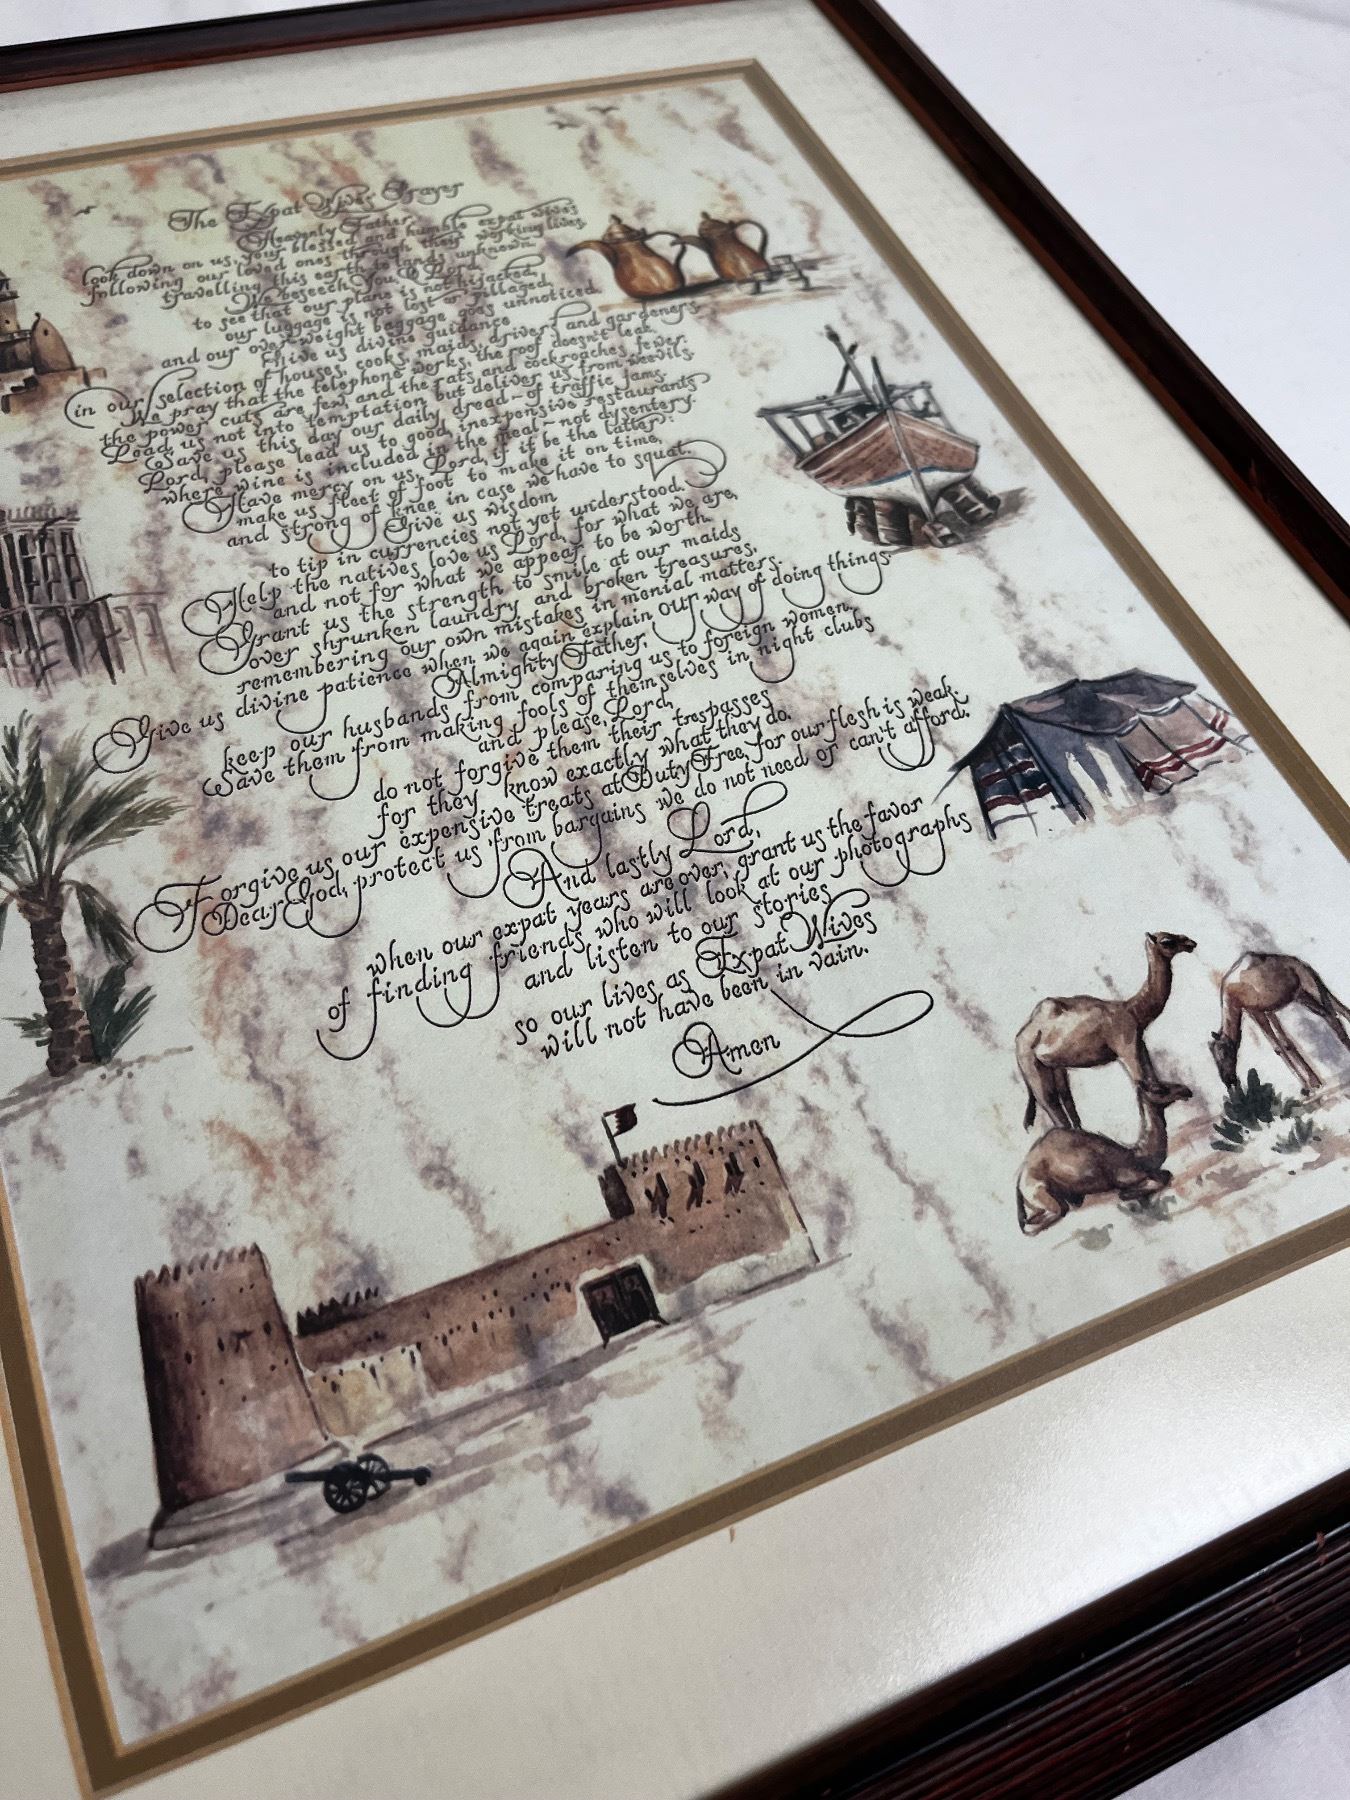 The Expat Wives Prayer
Heavenly Father,
look down on us, your blessed and humble expat wives
following our loved ones through their working lives,
travelling this earth to lands unknown.
We beseech You, O Lord,
to see that our plane is not hijacked,
our luggage is not lost or pillaged,
and our overweight baggage goes unnoticed.
Give us divine guidance
in our selection of houses, cooks, maids, drivers and gardeners.
We pray that the telephone works, the roof doesn't leak,
the power cuts are few, and the rats and cockroaches fewer.
Lead us not into temptation but deliver us from weevils.
Save us this day our daily dread - of traffic jams.
Lord, please lead us to good, inexpensive restaurants
where wine is included in the meal - not dysentery.
Have mercy on us, Lord, if it be the latter:
make us fleet of foot to make it on time,
and strong of knee in case we have to squat.
Give us wisdom
to tip in currencies not yet understood.
Help the natives love us Lord, for what we are,
and not for what we appear to be worth.
Grant us the strength to smile at our maids
over shrunken laundry and broken treasures,
remembering our own mistakes in menial matters.
Give us divine patience when we again explain our way of doing things.
Almighty Father,
keep our husbands from comparing us to foreign women.
Save them from making fools of themselves in night clubs
and please, Lord,
do not forgive them their trespasses
for they know exactly what they do.
Forgive us our expensive treats at Duty Free, for our flesh is weak.
Dear God, protect us from bargains we do not need or can't afford.
And lastly Lord,
when our expat years are over, grant us the favor
of finding friends who will look at our photographs
and listen to our stories
so our lives as Expat Wives
will not have been in vain.
Amen